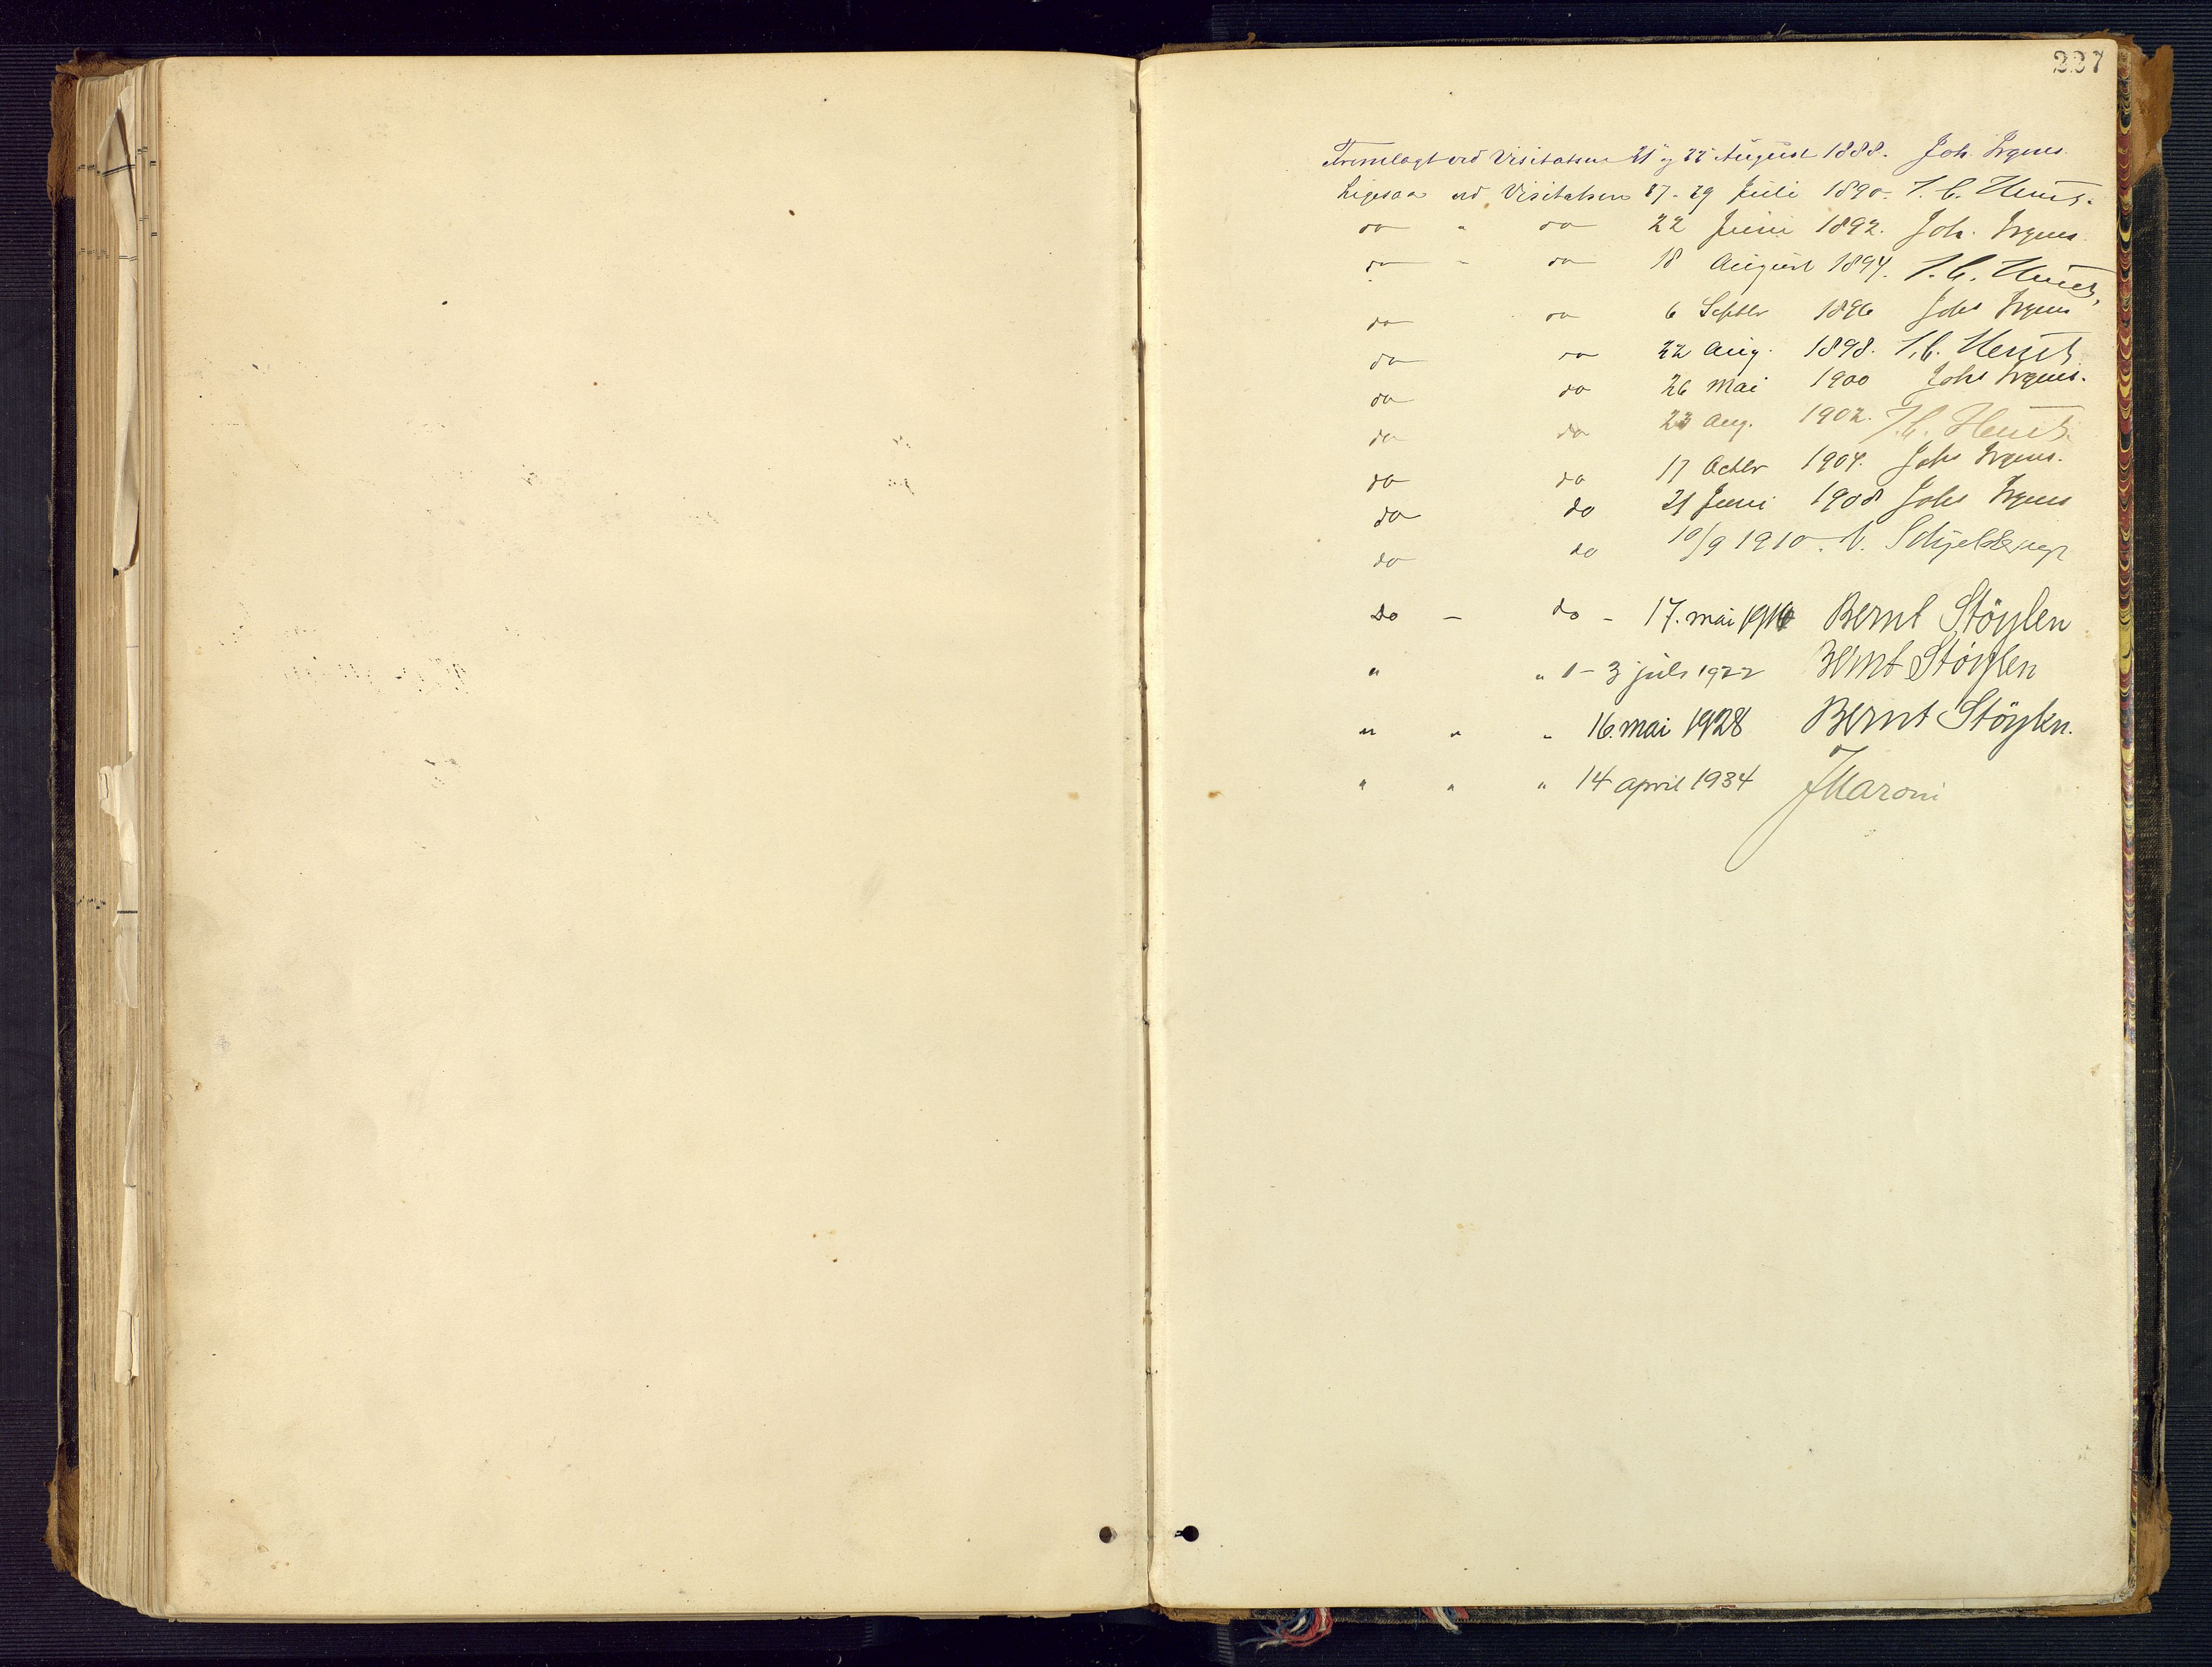 227
Fremlagt ved Visitatsen 21 og 22 August 1888. Joh. Irgens.
Ligesaa ved Visitatsen 27-29 Juli 1890. J. C. Heuch.
do " do 22 Juni 1892. Joh. Irgens.
do - do 18 August 1894. J. C. Heuch.
do do 6 Septbr 1896 Johs Irgens
do do 22 Aug. 1898. J. C. Heuch.
do do 26 Mai 1900 Johs Irgens.
do do 23 Aug. 1902. J. C. Heuch.
do do 17 Octbr 1904. Johs Irgens.
do do 21 Juni 1908 Johs Irgens
do do 10/9 1910. K. Schjelderup
Do - do - 17. mai 1916 Bernt Støylen
" " 1-3 juli 1922 Bernt Støylen
" " " 16. mai 1928 Bernt Støylen.
" " " 14 april 1934 J Maroni